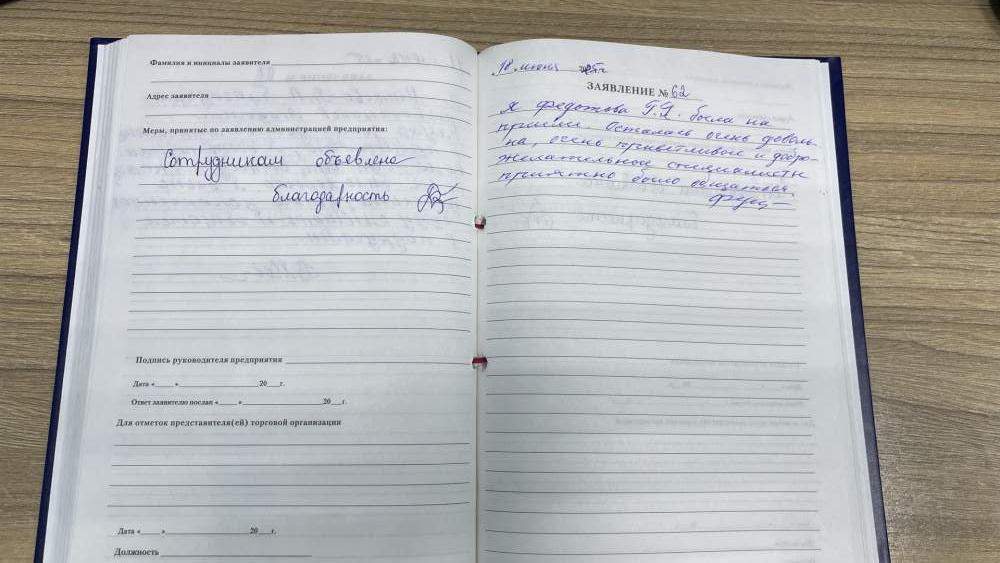 Фамилия и инициалы заявителя
Адрес заявителя
Меры, принятые по заявлению администрацией предприятия:
Сотрудникам объевлена
благодарность
Подпись руководителя предприятия
Дата «___» ___ 20__г.
Ответ заявителю послан «___» ___ 20__г.
Для отметок представителя(ей) торговой организации
Дата «___» ___ 20__г.
Должность
18 июня 25г
ЗАЯВЛЕНИЕ № 62
Я Федотова Г.Я. была на
приеме. Осталась очень доволь-
на, очень приветливые и добро-
желательные специалисты
приятно было общаться.